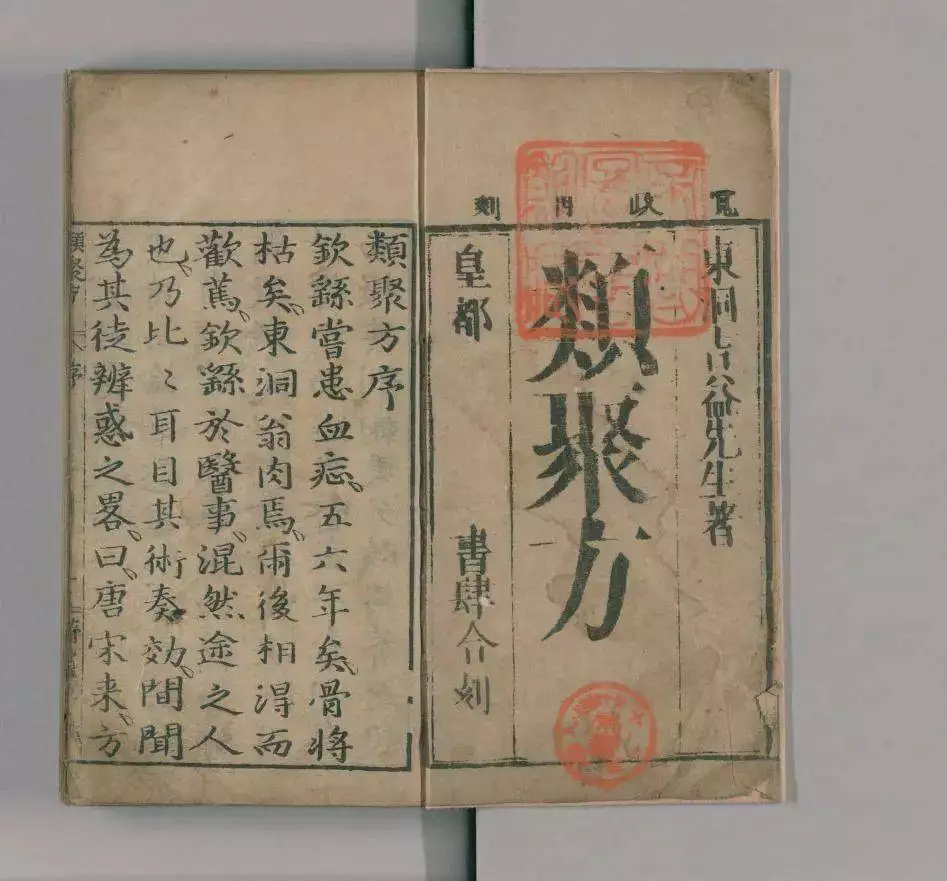 寛政 刻
東洞吉益先生著
類聚方
皇都 書肆合刻
類聚方序
欽繇嘗患血、五六年矣、骨將
枯矣、東洞翁肉焉、爾後相得而
歡焉、欽繇於醫事、混然途之人
也、乃比〻耳目其術奏効、間聞
為其徒辨惑之畧、曰、唐宋来、方
類聚方 序